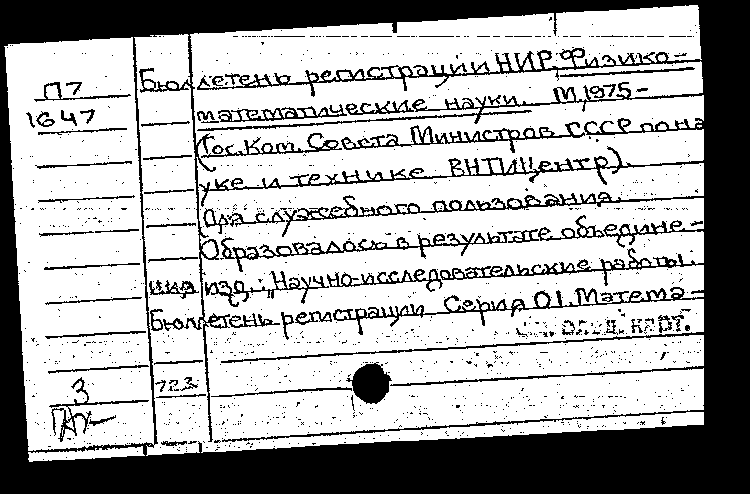 П7
1647
Бюллетень регистрации НИР. Физико-
математические науки. М, 1975-
(Гос. Ком. Совета Министров СССР по на
уке и технике ВНТИЦентр).
Для служебного пользования.
Образовалось в результате объедине-
ния изд.: „Научно-исследовательские работы.
Бюллетень регистрации Серия 01. Матема-
см. след. карт.
3
723